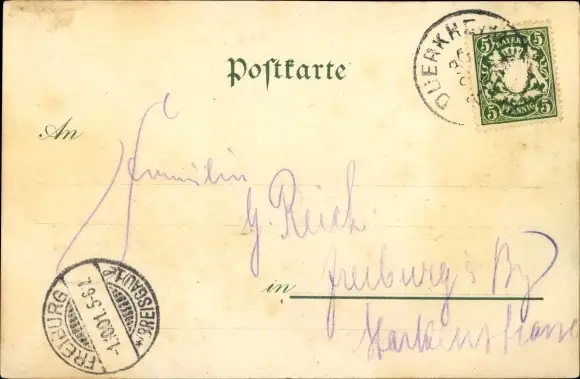 DUERKHEIM
BAYERN
5 5
5 PFENNIG 5
Postkarte
An
Fräulein
G. Reich.
in Freiburg i. Bg
FREIBURG
-1.10.01.5-6
* (BREISGAU) *